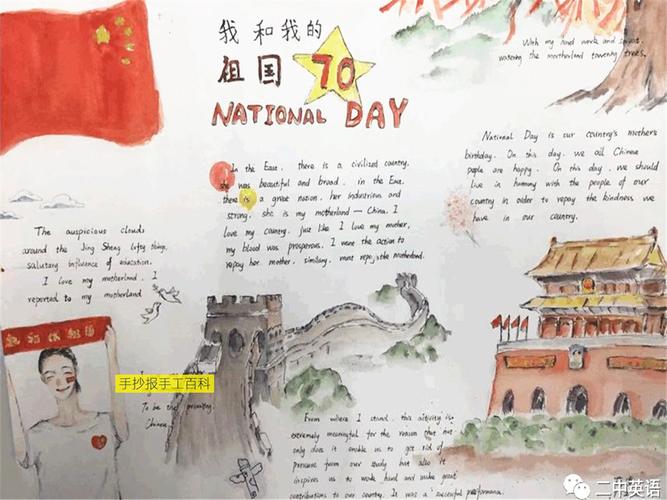 我和我的
祖国 70
NATIONAL DAY
With my hard work and
watering the motherland towering trees.
In the East, there is a civilized country.
she was beautiful and broad. in the East,
there is a great nation. her industrious and
strong. she is my motherland — China. I
love my country, just like I love my mother,
my blood was prosperous. I want the action to
repay her mother, similary, must repay the motherland.
National Day is our country's mother's
birthday. On this day, we all Chinese
people are happy. On this day, we should
live in harmony with the people of our
country in order to repay the kindness we
have in our country.
The auspicious clouds
around the Jing Sheng lofty things,
salutary influence of education.
I love my motherland. I
reported to my motherland
我和我的祖国
手抄报手工百科
To be the
China.
From where I stand, this activity is
extremely meaningful for the reason that not
only does it enable us to get rid of
pressure from our study but also it
inspires us to work hard and make great
contributions to our country. It was a successful performance.
二中英语